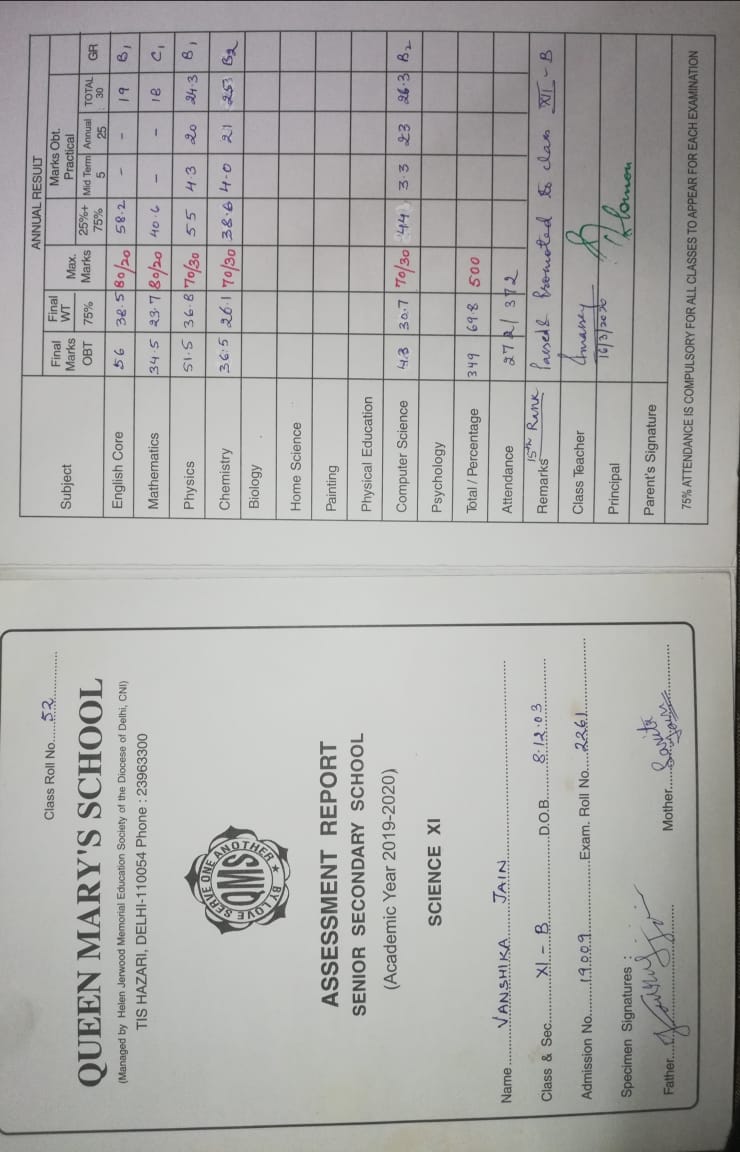 Class Roll No. 52
QUEEN MARY'S SCHOOL
(Managed by Helen Jerwood Memorial Education Society of the Diocese of Delhi, CNI)
TIS HAZARI, DELHI-110054 Phone : 23963300
BY LOVE SERVE ONE ANOTHER
QMS
ASSESSMENT REPORT
SENIOR SECONDARY SCHOOL
(Academic Year 2019-2020)
SCIENCE XI
Name VANSHIKA JAIN
Class & Sec. XI - B D.O.B. 8.12.03
Admission No. 19009 Exam. Roll No. 2261
Specimen Signatures :
Father Mother
ANNUAL RESULT
Subject Final Marks OBT Final WT 75% Max. Marks 25%+ 75% Marks Obt. Practical Mid Term 5 Annual 25 TOTAL 30 GR
English Core 56 38.5 80/20 58.2 - - 19 B1
Mathematics 34.5 23.7 80/20 40.6 - - 18 C1
Physics 51.5 36.8 70/30 55 4.3 20 24.3 B1
Chemistry 36.5 26.1 70/30 38.6 4.0 21 25 B2
Biology
Home Science
Painting
Physical Education
Computer Science 43 30.7 70/30 44 3.3 23 26.3 B2
Psychology
Total / Percentage 349 69.8 500
Attendance 272/372
15th Rank
Remarks Passed & Promoted to class XII - B
Class Teacher
Principal 16/3/2020
Parent's Signature
75% ATTENDANCE IS COMPULSORY FOR ALL CLASSES TO APPEAR FOR EACH EXAMINATION